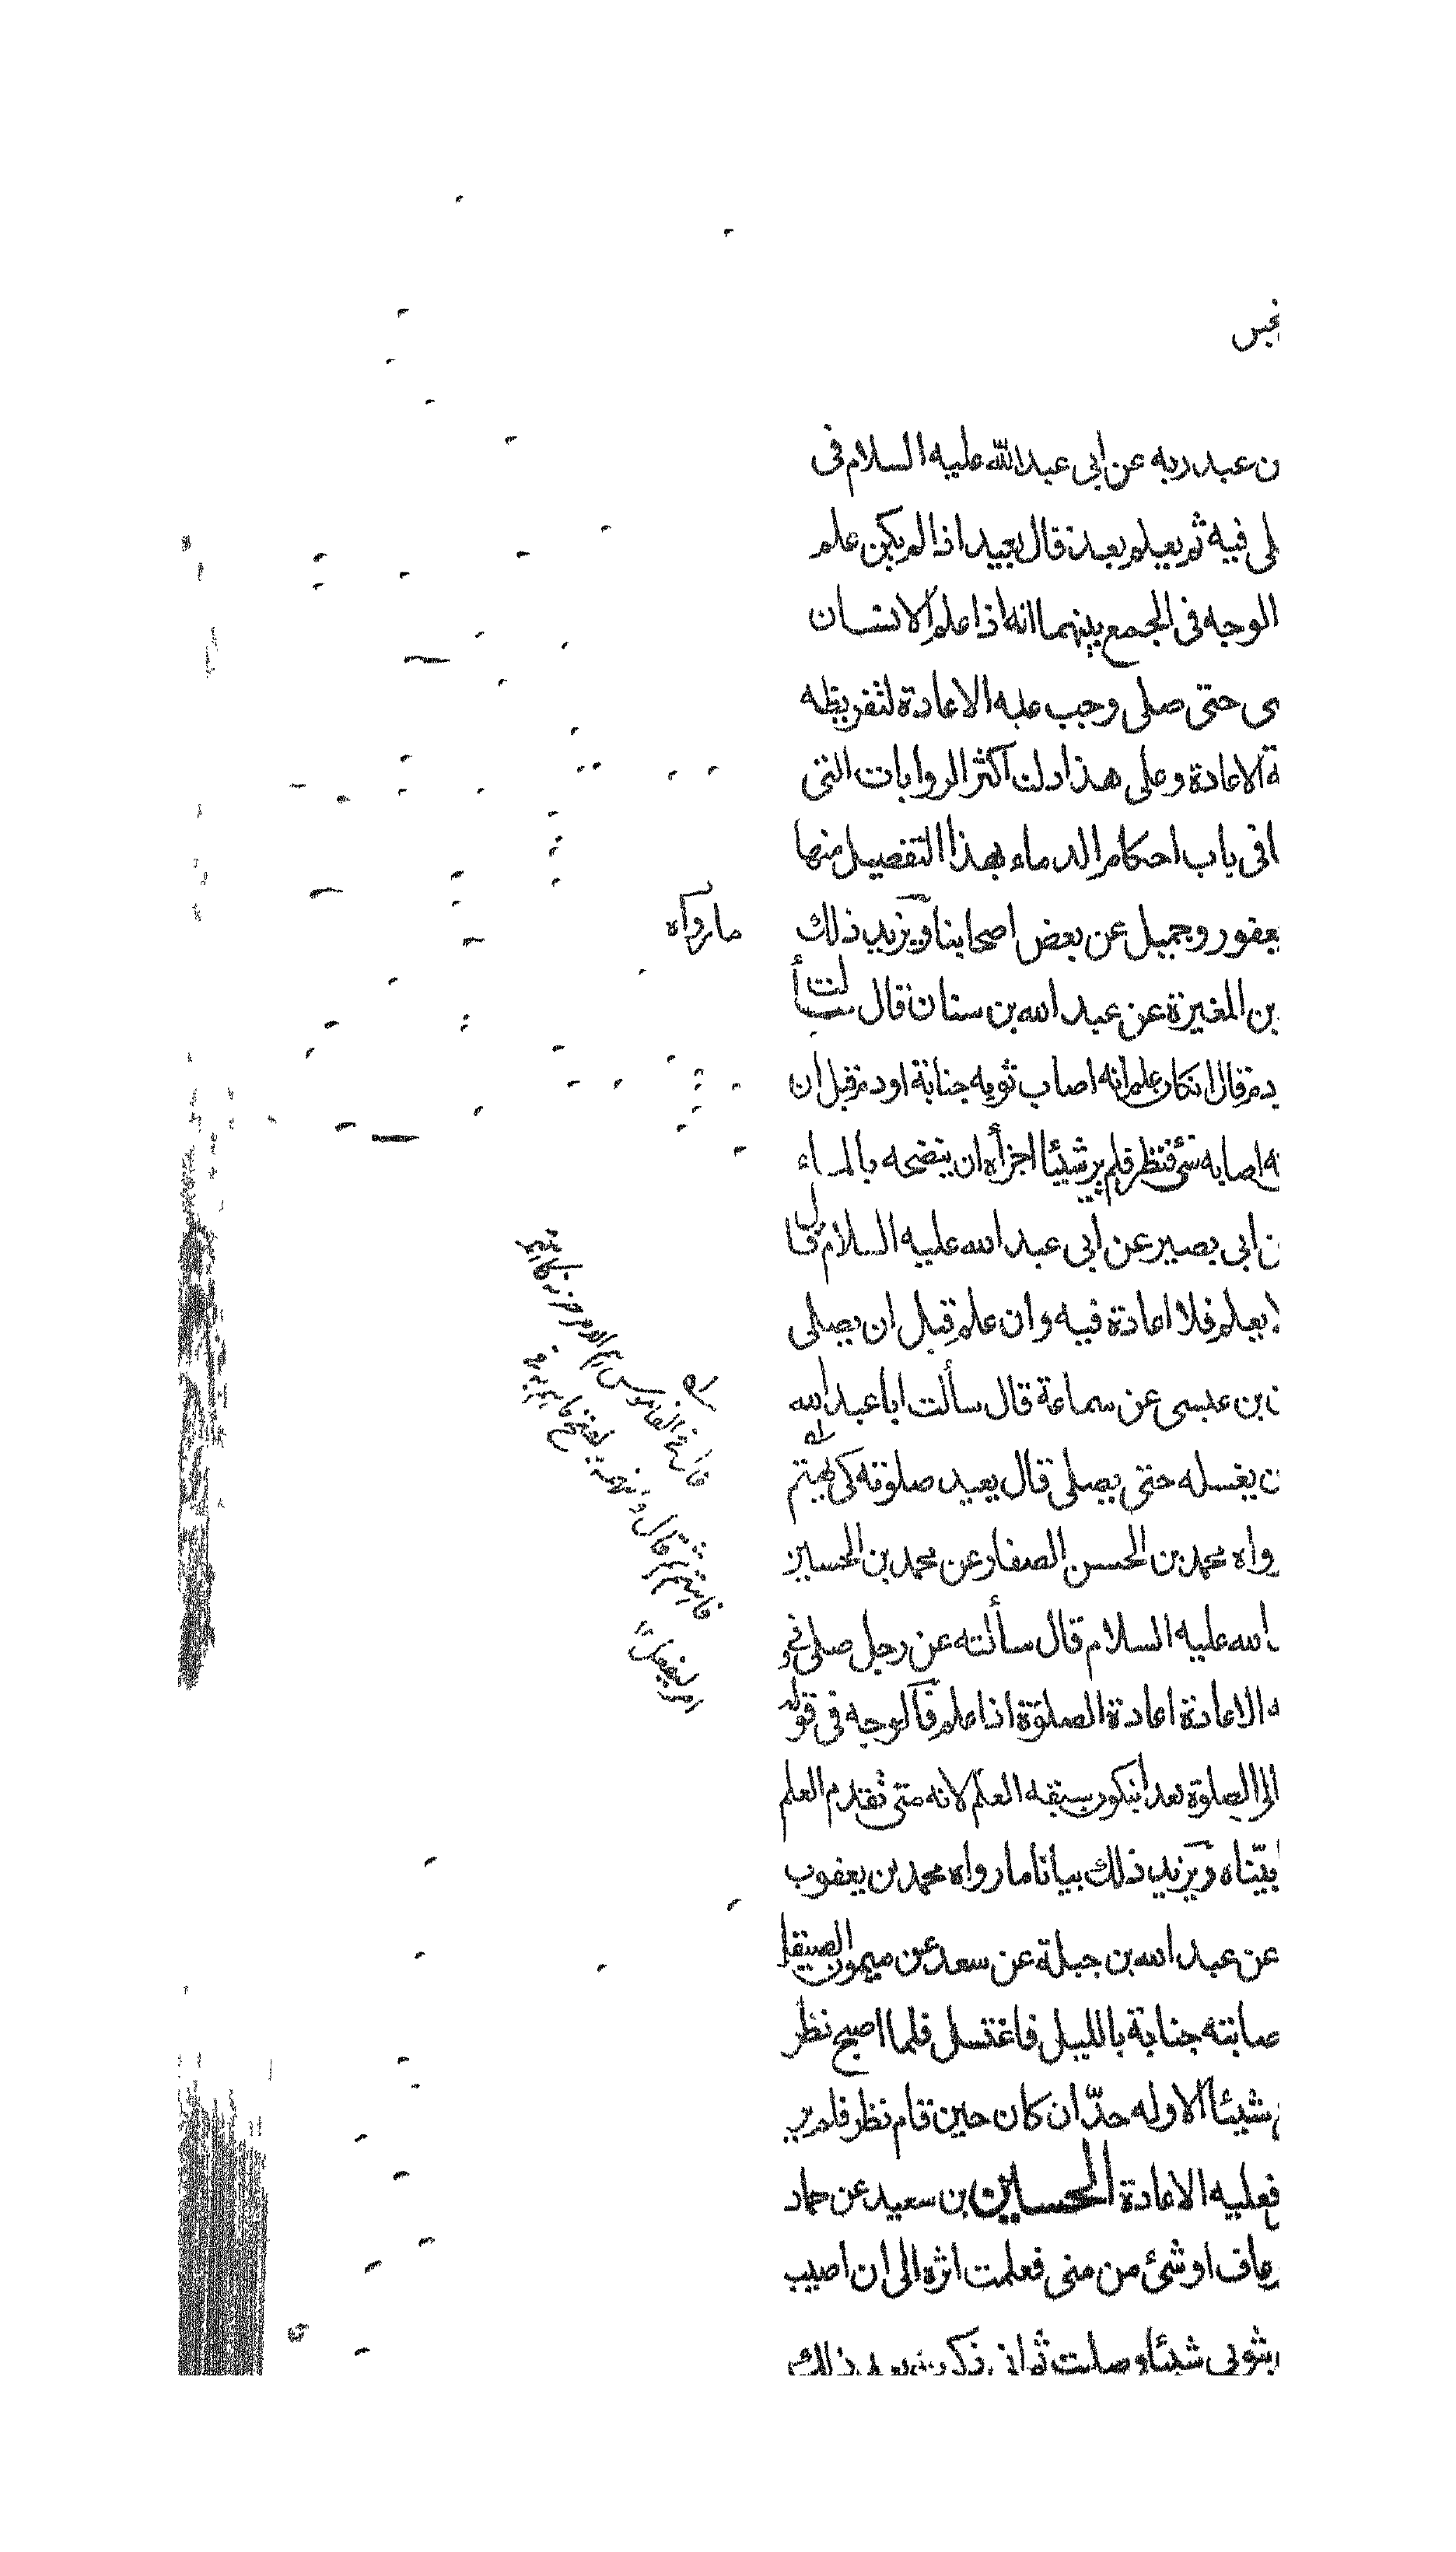 نجس
ن عبد ربه عن ابى عبد الله عليه السلام فى
لى فيه ثم يعلم بعد قال يعيد اذا لم يكن علم
الوجه فى الجمع بينهما انه اذا علم الانسان
سى حتى صلى وجب عليه الاعادة لتفريطه
الاعادة وعلى هذا دلت اكثر الروايات التى
فى باب احكام الدماء بهذا التفصيل منها
يعفور وجميل عن بعض اصحابنا ويزيد ذلك
ما رواه
بن المغيرة عن عبد الله بن سنان قال سألت
دم قال ان كان علم انه اصاب ثوبه جنابة او دم قبل ان
نه اصابه شئ فنظر فلم ير شيئا اجزأه ان ينضحه بالماء
ن ابى بصير عن ابى عبد الله عليه السلام قال
لا يعلم فلا اعادة فيه وان علم قبل ان يصلى
ن بن عيسى عن سماعة قال سألت ابا عبد الله
ن يغسله حتى يصلى قال يعيد صلوته كى يهتم
رواه محمد بن الحسن الصفار عن محمد بن الحسين
الله عليه السلام قال سألته عن رجل صلى فى
ه الاعادة اعادة الصلوة اذا علم فالوجه فى قوله
الى الصلوة بعد ان يكون سبقه العلم لانه متى تقدم العلم
بيّناه ويزيد ذلك بيانا ما رواه محمد بن يعقوب
عن عبد الله بن جبلة عن سعد عن ميمون الصيقل
صابته جنابة بالليل فاغتسل فلما اصبح نظر
شيئا الا وله حدّ ان كان حين قام نظر فلم ير
فعليه الاعادة الحسين بن سعيد عن حماد
رعاف او شئ من منى فعلمت اثره الى ان اصيب
بثوبى شيئا وصليت ثم انى ذكرت بعد ذلك